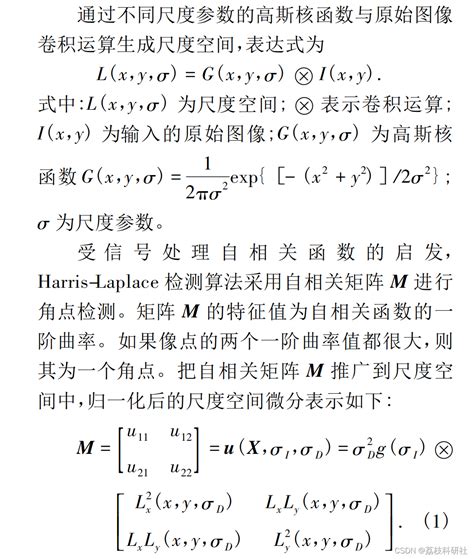 通过不同尺度参数的高斯核函数与原始图像
卷积运算生成尺度空间,表达式为
L(x,y,σ) = G(x,y,σ) ⊗ I(x,y).
式中:L(x,y,σ) 为尺度空间; ⊗ 表示卷积运算;
I(x,y) 为输入的原始图像;G(x,y,σ) 为高斯核
函数 G(x,y,σ) = 1/2πσ² exp{ [-(x² + y²)]/2σ² };
σ 为尺度参数。
受信号处理自相关函数的启发,
Harris-Laplace 检测算法采用自相关矩阵 M 进行
角点检测。矩阵 M 的特征值为自相关函数的一
阶曲率。如果像点的两个一阶曲率值都很大,则
其为一个角点。把自相关矩阵 M 推广到尺度空
间中,归一化后的尺度空间微分表示如下:
M = [u₁₁ u₁₂; u₂₁ u₂₂] = u(X,σ_I,σ_D) = σ_D² g(σ_I) ⊗
[L_x²(x,y,σ_D) L_xL_y(x,y,σ_D)
L_xL_y(x,y,σ_D) L_y²(x,y,σ_D)]. (1)
CSDN @荔枝科研社